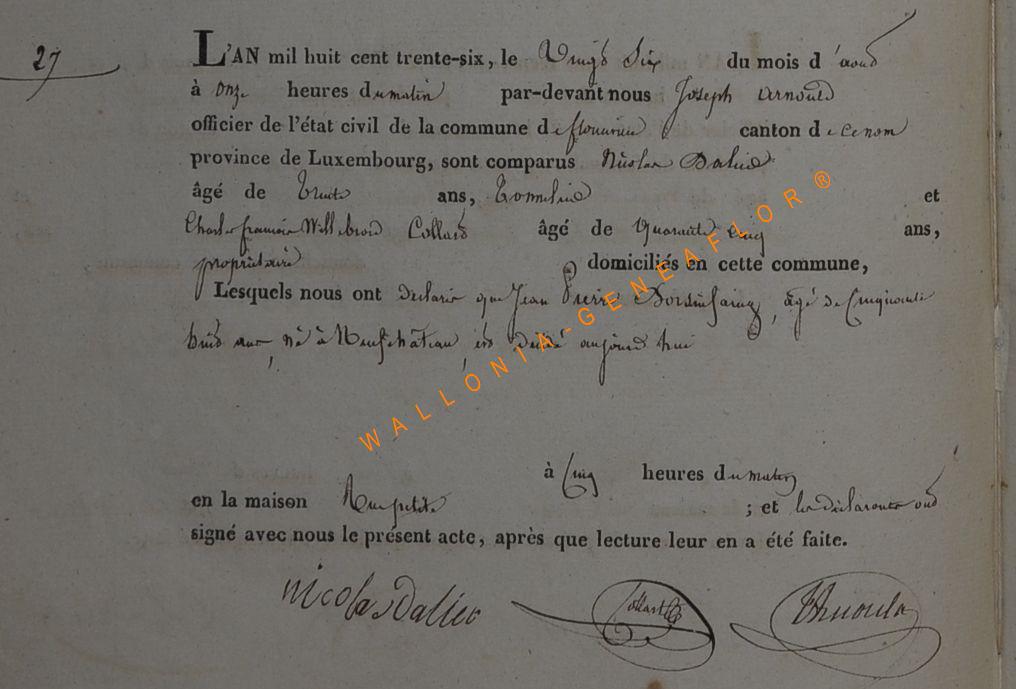 27
L'AN mil huit cent trente-six, le Vingt Six du mois d'aout
à onze heures du matin par-devant nous Joseph Arnould
officier de l'état civil de la commune de canton de ce nom
province de Luxembourg, sont comparus Nicolas
âgé de Trente ans, et
Charles françois Willebrord Collard âgé de Quarante Cinq ans,
propriétaire domiciliés en cette commune,
Lesquels nous ont déclaré que Jean Pierre âgé de Cinquante
huit ans, né à Neufchâteau, est décédé aujourd'hui
à Cinq heures du matin
en la maison ; et les déclarants ont
signé avec nous le présent acte, après que lecture leur en a été faite.
Nicolas Collard Arnould
WALLONIA-GENEAFLOR ®